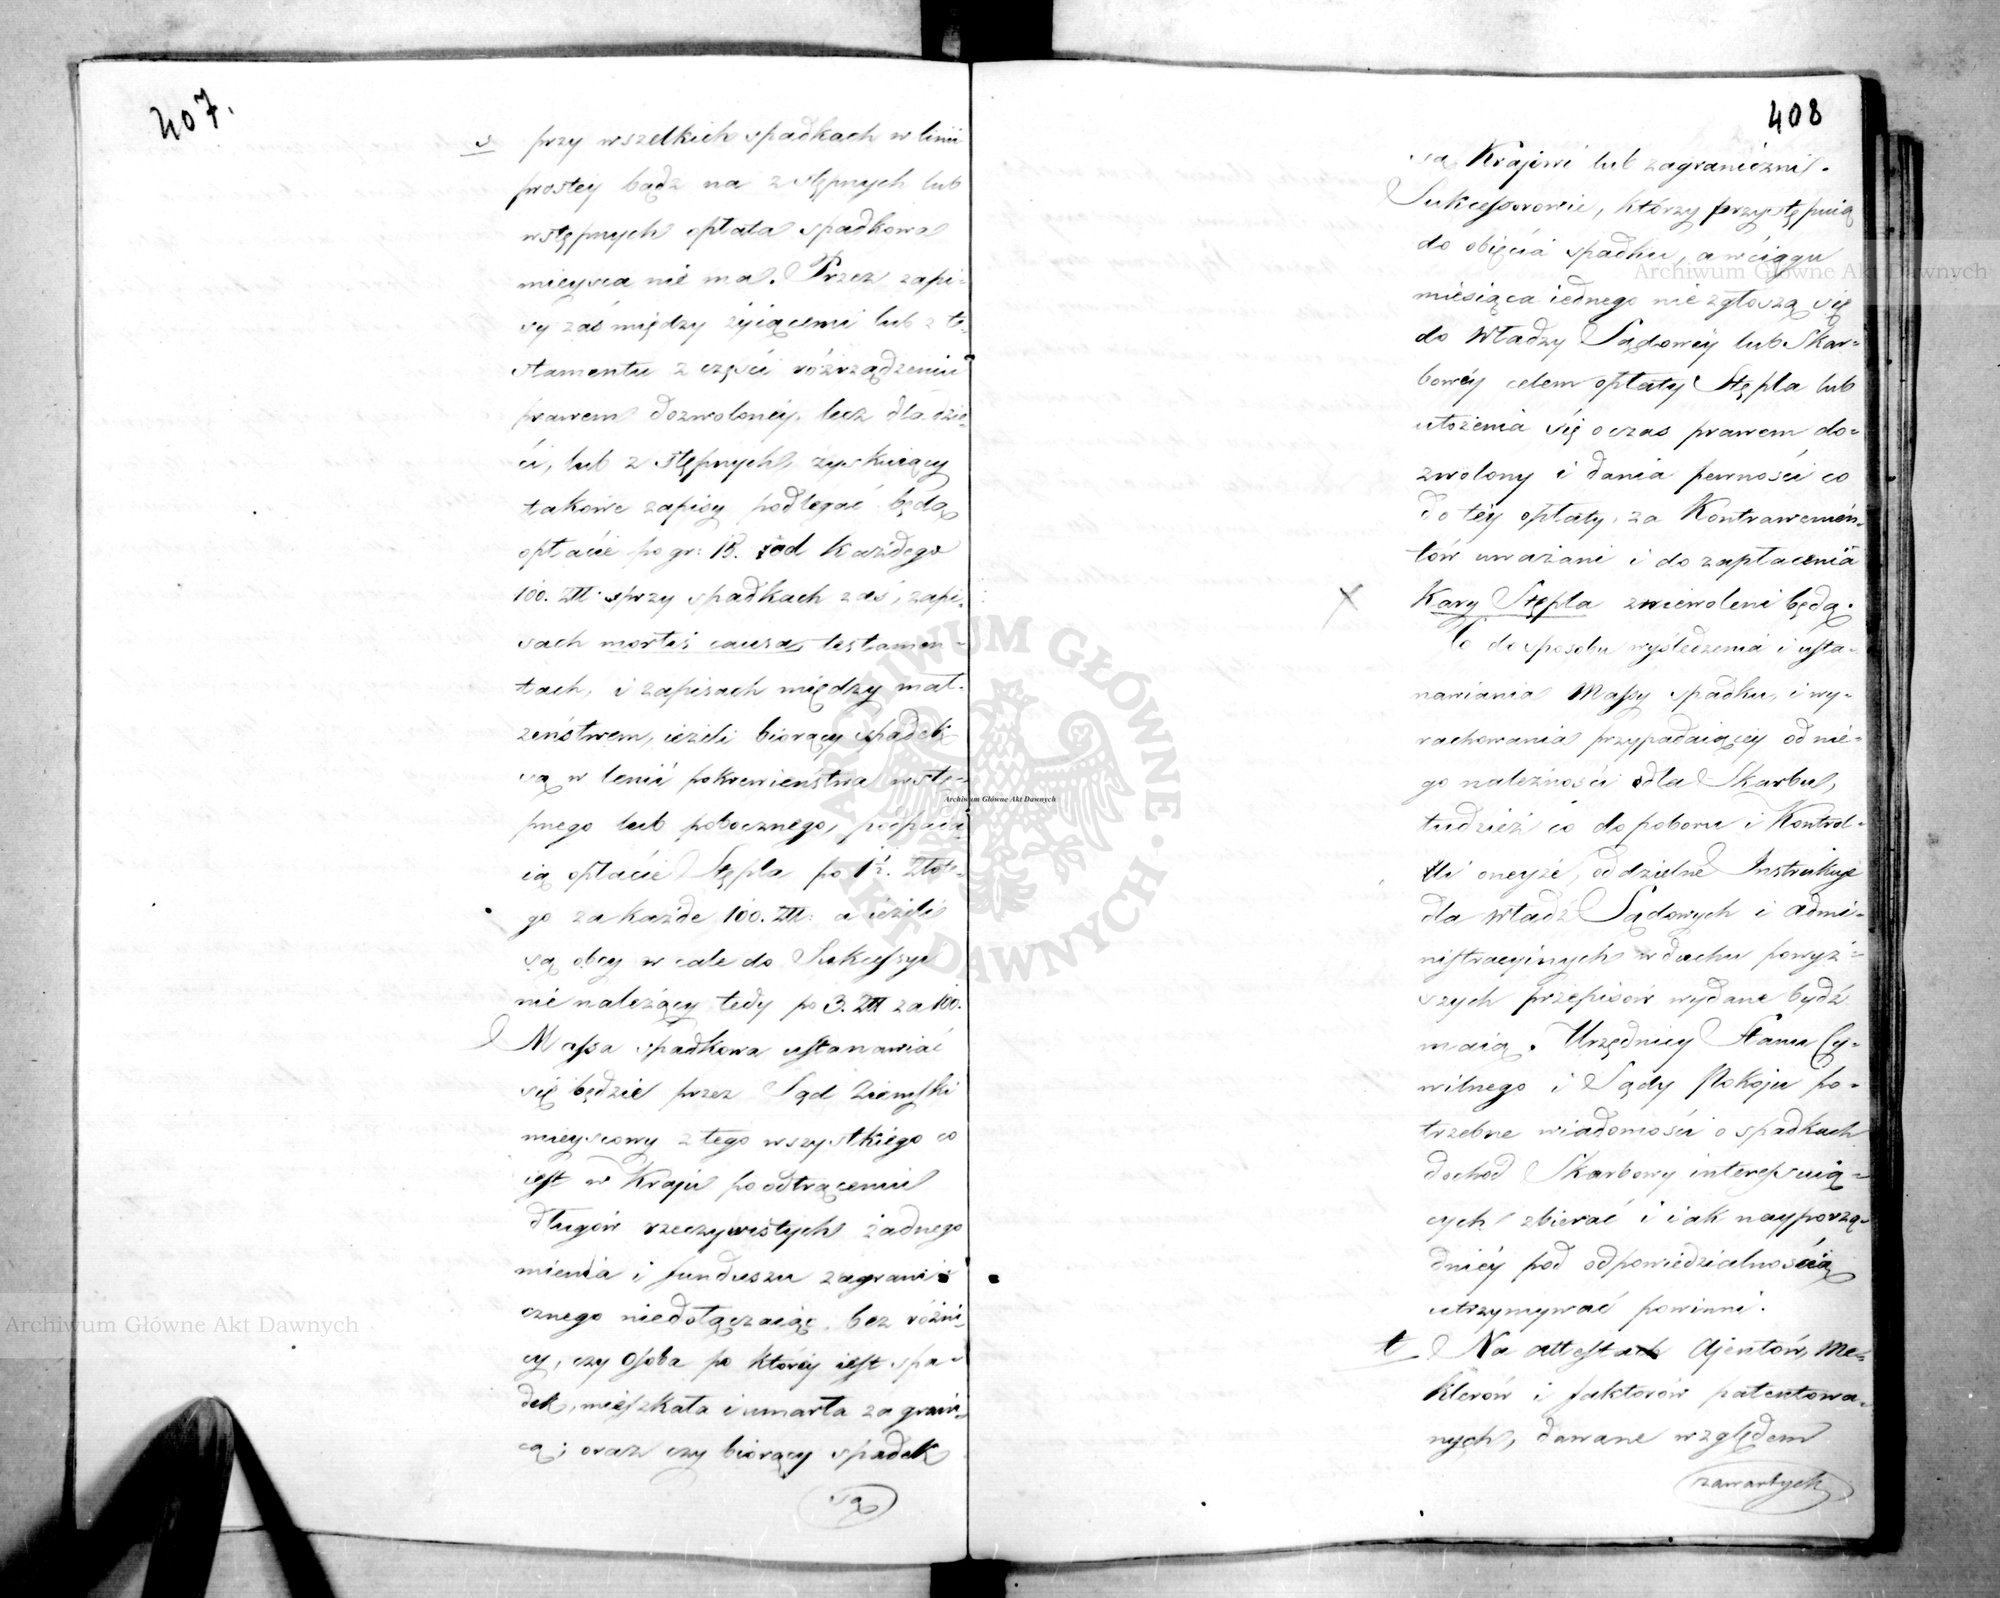 407.
s przy wszelkich spadkach w linii
prostey bądź na zstępnych lub
wstępnych opłata spadkowa
mieysca nie ma. Przez zapi-
sy zaś między żyiącemi lub z te-
stamentu z części rozrządzeniu
prawem dozwoloney, lecz dla dzie-
ci, lub zstępnych, zyskuiący
takowe zapisy podlegać będą
opłacie po gr: 15. od każdego
100. Zł: przy spadkach zaś, zapi-
sach mortis causa, testamen-
tach, i zapisach między mał-
żeństwem, ieżeli biorący spadek
są w linii pokrewieństwa wstę-
pnego lub pobocznego, podpada-
ią opłacie Stępla po 1½. Złote-
go za każde 100. Zł: a ieżeli
są obcy wcale do Sukcessyi
nie należący tedy po 3. Zł za 100.
Massa spadkowa ustanawiać
się będzie przez Sąd Ziemski
mieyscowy z tego wszystkiego co
iest w Kraju po odtrąceniu
długów rzeczywistych żadnego
mienia i funduszu zagrani-
cznego niedołączaiąc, bez różni-
cy, czy osoba po którey iest spa-
dek, mieszkała i umarła za grani-
cą; oraz czy biorący spadek
są
408
są Krajowi lub zagraniczni.
Sukcessorowie, którzy przystępuią
do obięcia spadku, a w ciągu
miesiąca iednego nie zgłoszą się
do Władzy Sądowey lub Skar-
bowey celem opłaty Stępla lub
ułożenia się o czas prawem do-
zwolony i dania pewności co
do tey opłaty, za Kontrawenien-
tów uważani i do zapłacenia
Kary Stępla zniewoleni będą.
Co do sposobu wyśledzenia i usta-
nawiania Massy spadku, i wy-
rachowania przypadaiącey od nie-
go należności dla Skarbu,
tudzież co do poboru i Kontrol-
li oneyże, oddzielne Instrukcye
dla Władz Sądowych i admi-
nistracyinych w duchu powyż-
szych przepisów wydane bydź
maią. Urzędnicy Stanu Cy-
wilnego i Sądy Pokoju po-
trzebne wiadomości o spadkach
dochod Skarbowy interessuią-
cych zbierać i iak nayporzą-
dniey pod odpowiedzialnością
utrzymywać powinni.
t Na attestach Ajentów, Me-
klerów i faktorów patentowa-
nych, dawane względem
zawartych
Archiwum Główne Akt Dawnych
Archiwum Główne Akt Dawnych
Archiwum Główne Akt Dawnych
ARCHIWUM GŁÓWNE · AKT DAWNYCH ·